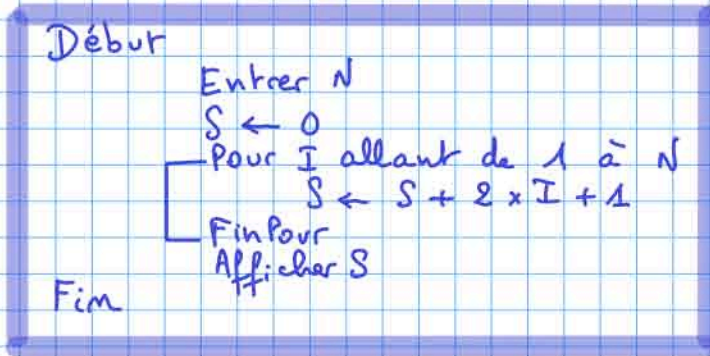 Début
Entrer N
S ← 0
Pour I allant de 1 à N
S ← S + 2 × I + 1
FinPour
Afficher S
Fin